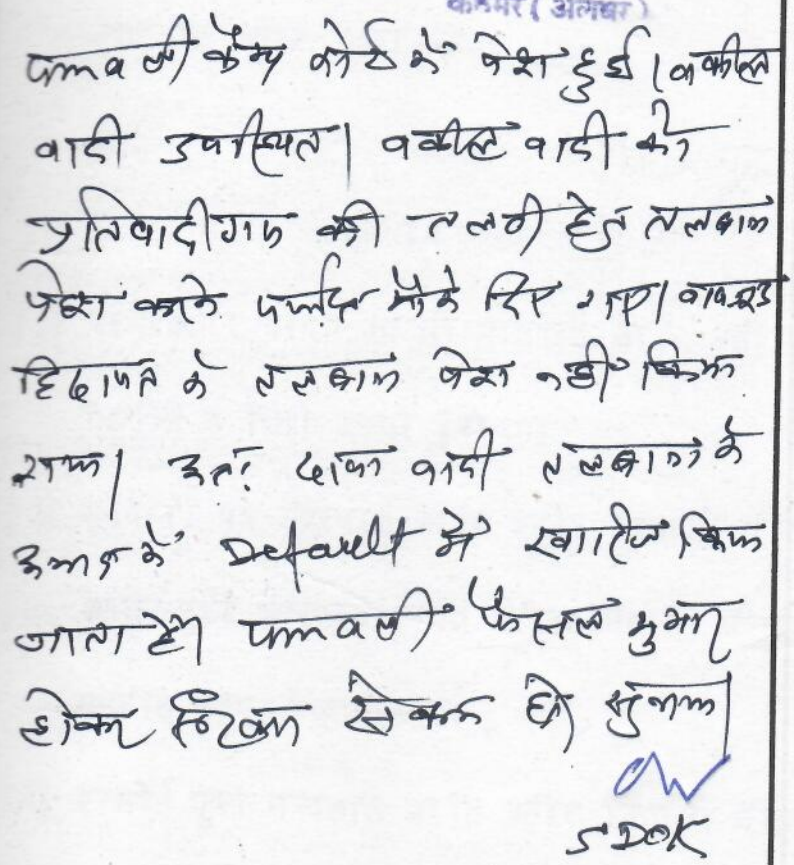 कठूमर (अलवर)
पत्रावली कैम्प कोर्ट में पेश हुई। वकील
वादी उपस्थित। वकील वादी को
प्रतिवादीगण की तलबी हेतु तलबाना
पेश करने पर्याप्त मौके दिए गए। बावजूद
हिदायत के तलबाना पेश नहीं किया
गया। अतः दावा वादी तलबाना के
अभाव में Default में खारिज किया
जाता है। पत्रावली फैसल शुमार
होकर रिकार्ड हो सुनाया
SDOK